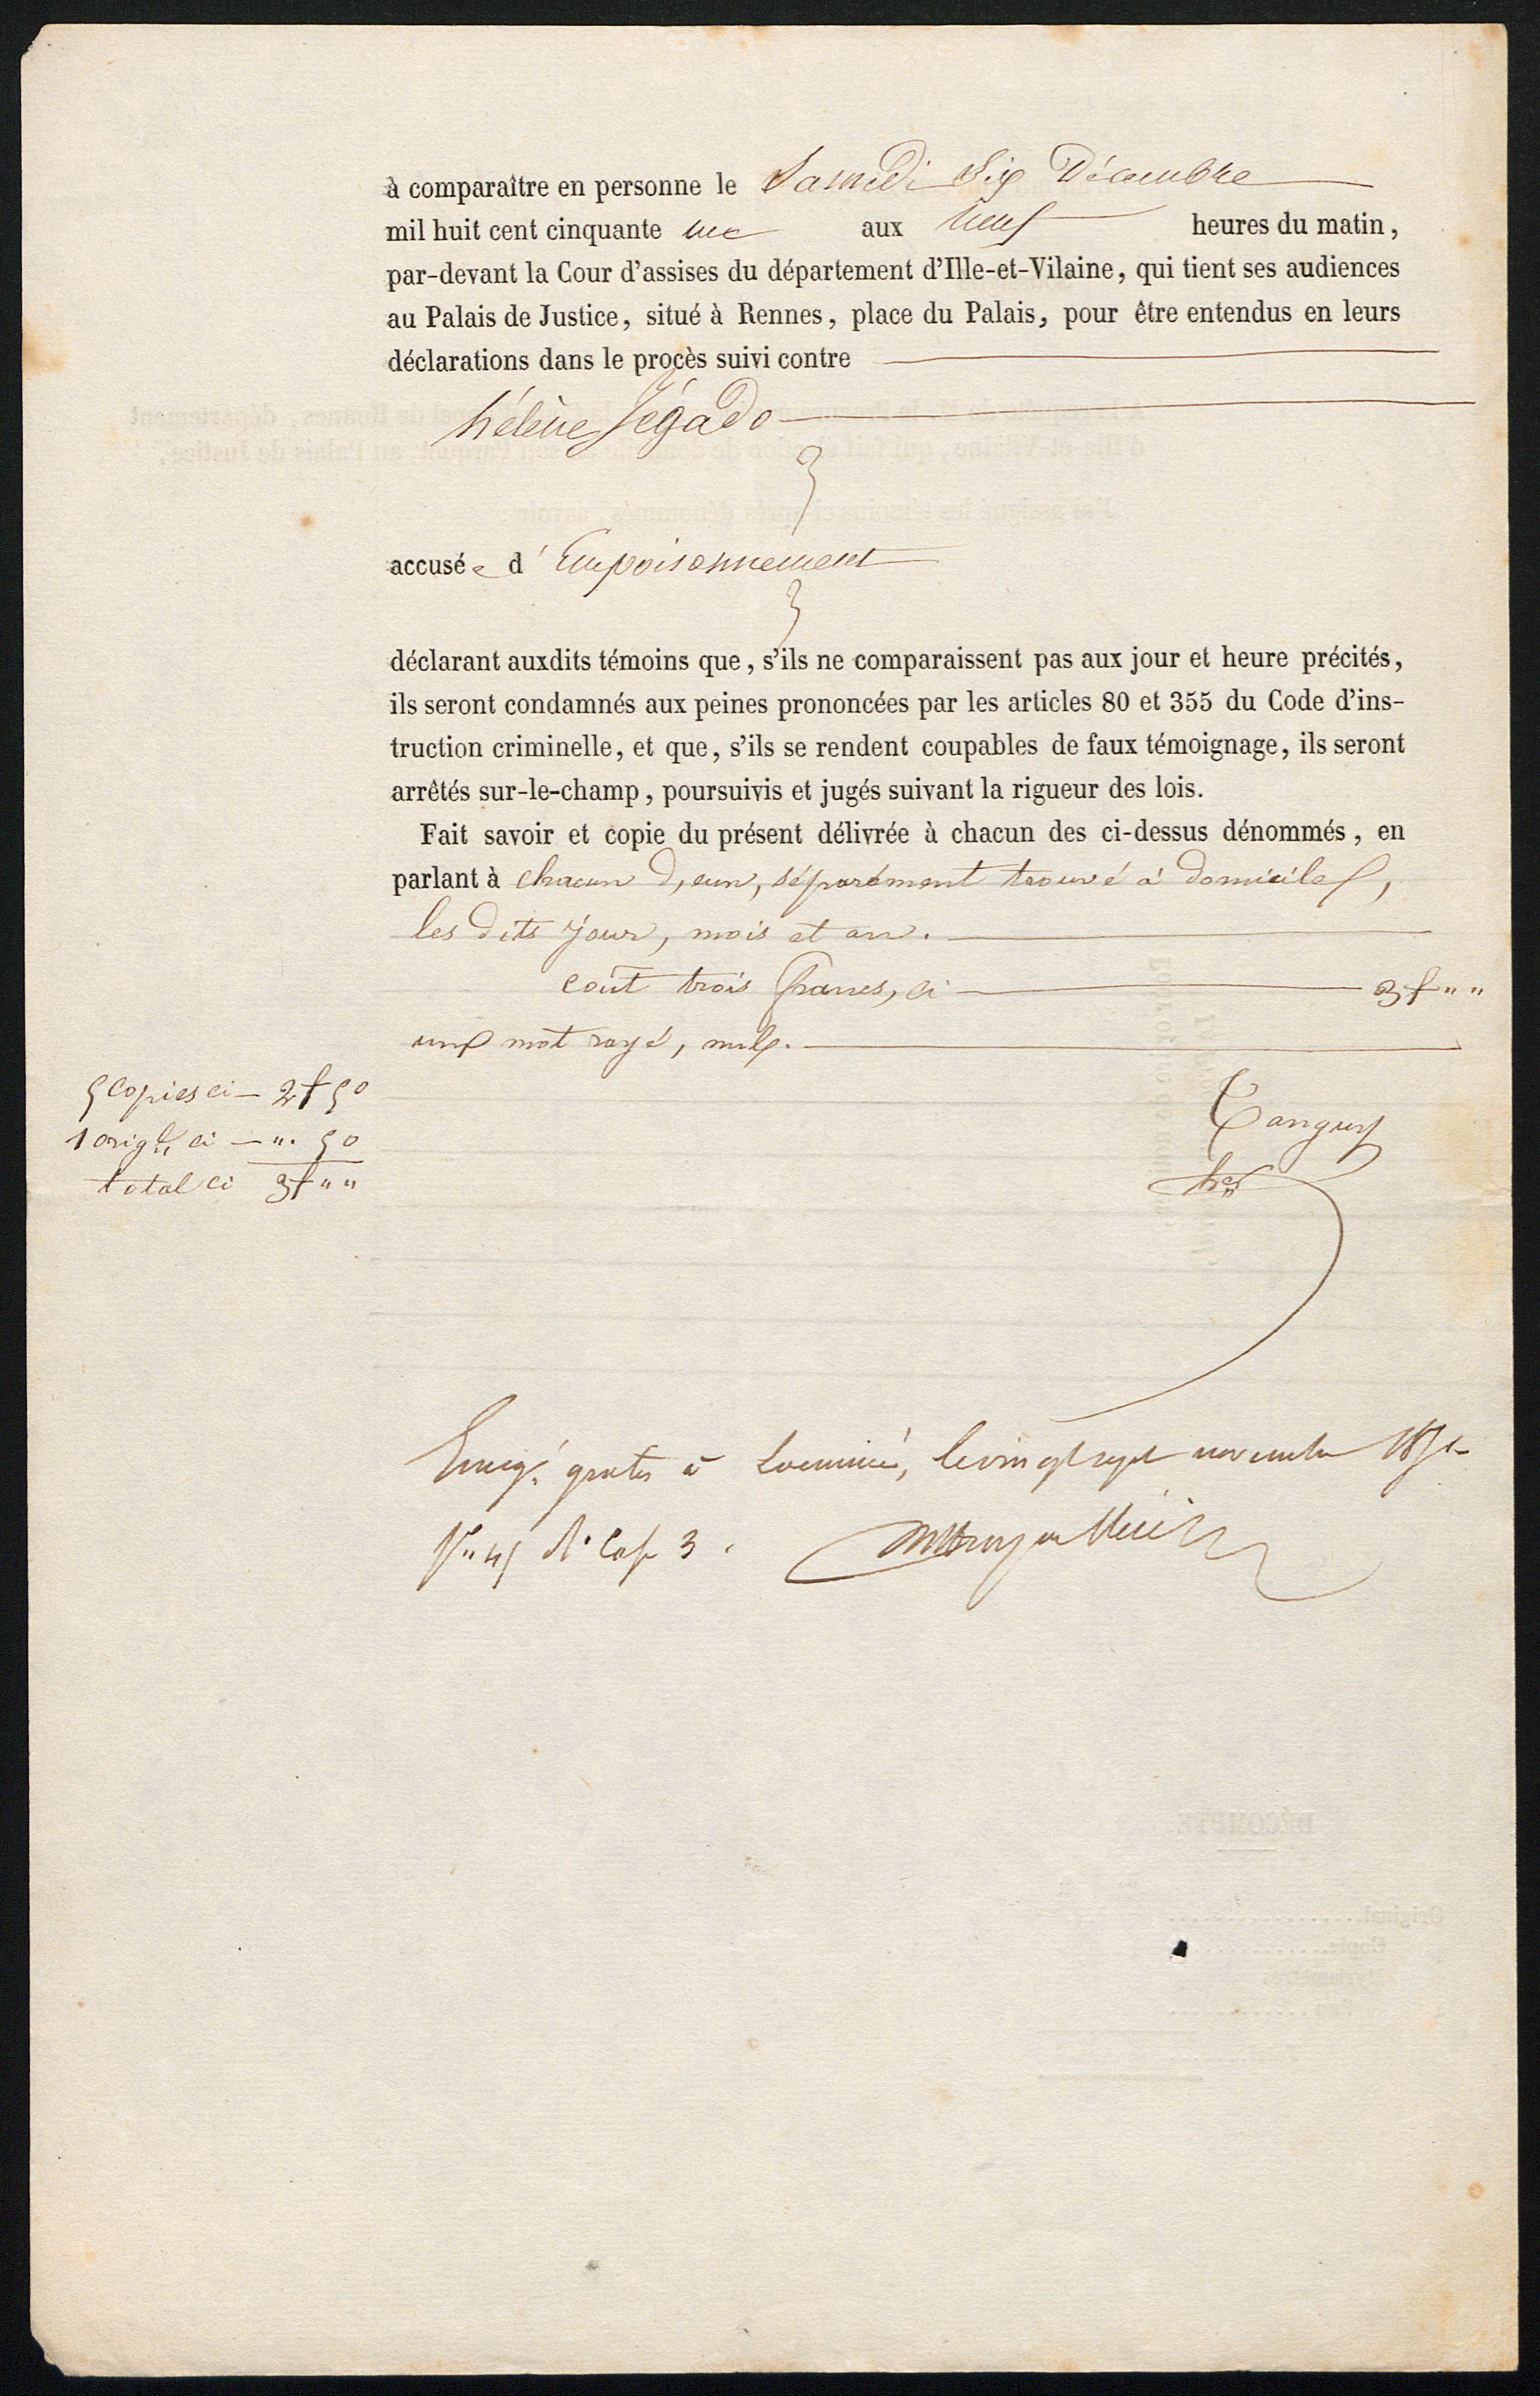 à comparaître en personne le Samedi Six Décembre
mil huit cent cinquante un aux neuf heures du matin,
par-devant la Cour d'assises du département d'Ille-et-Vilaine, qui tient ses audiences
au Palais de Justice, situé à Rennes, place du Palais, pour être entendus en leurs
déclarations dans le procès suivi contre
hélène Jégado
accusée d'Empoisonnement
déclarant auxdits témoins que, s'ils ne comparaissent pas aux jour et heure précités,
ils seront condamnés aux peines prononcées par les articles 80 et 355 du Code d'ins-
truction criminelle, et que, s'ils se rendent coupables de faux témoignage, ils seront
arrêtés sur-le-champ, poursuivis et jugés suivant la rigueur des lois.
Fait savoir et copie du présent délivrée à chacun des ci-dessus dénommés, en
parlant à chacun d,eux, séparément trouvé à domicile,
les dits jour, mois et an.
coût trois francs, ci 3f " "
un mot rayé, nul.
5 copies ci 2f 50
1 orig.l, ci ". 50
total ci 3f " "
Tanguy
her
gratis à Locminé, le vingt sept novembre 1851
3.
DÉCOMPTE.
Original
Copie